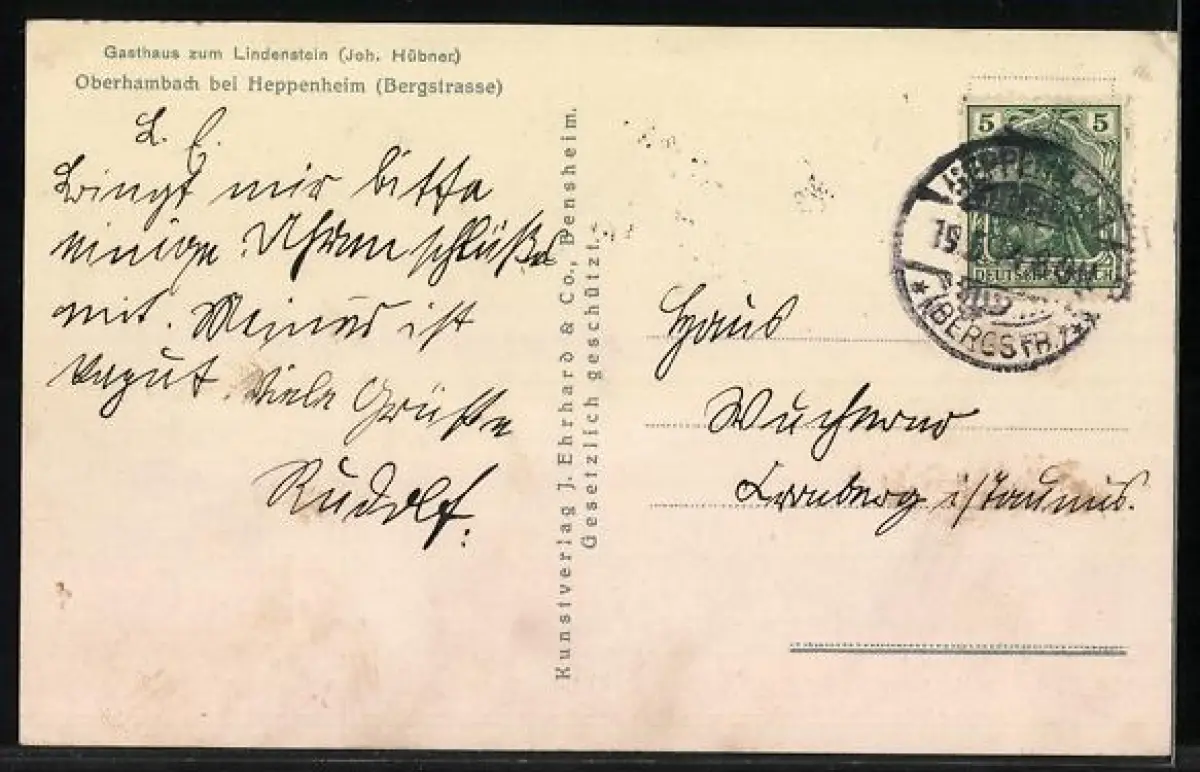 Gasthaus zum Lindenstein (Joh. Hübner)
Oberhambach bei Heppenheim (Bergstrasse)
L. E.
Bringt mir bitte
einige Uhrenschlüssel
mit. Meiner ist
kaput. Viele Grüße
Rudolf.
Kunstverlag J. Ehrhard & Co., Bensheim.
Gesetzlich geschützt.
5 5
DEUTSCHES REICH
HEPPENHEIM
19
* (BERGSTR.) *
Haus
Wucherer
Cronberg i/Taunus.